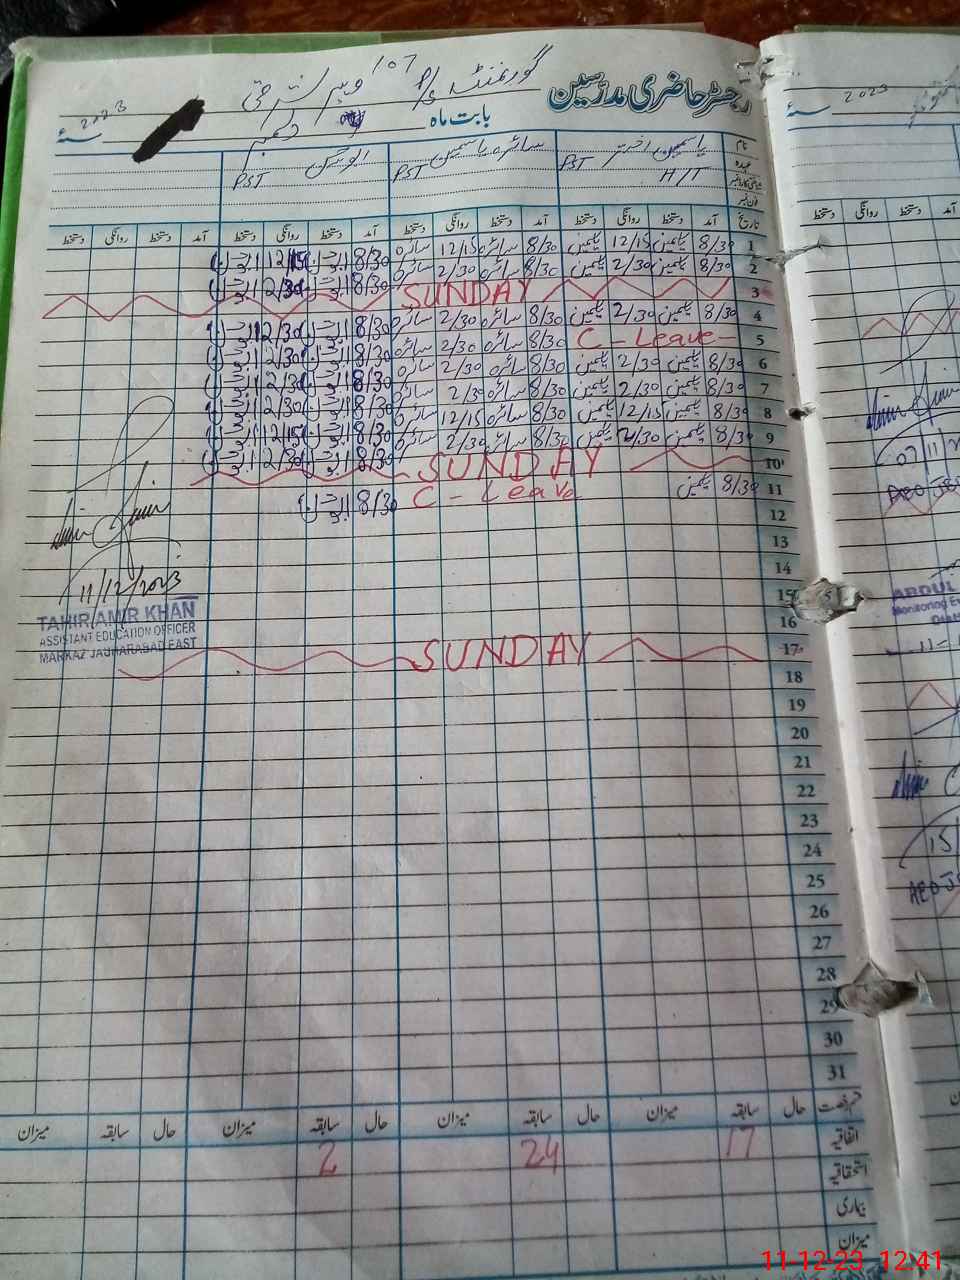 رجسٹر حاضری مدرسین
گورنمنٹ P/S 107
بابت ماہ دسمبر 2023 سنہ
2023 سنہ
نام یاسمین اختر سائرہ یاسمین
عہدہ PST H/T PST PST
تاریخ آمد دستخط روانگی دستخط آمد دستخط روانگی دستخط آمد دستخط روانگی دستخط آمد دستخط روانگی دستخط
1 8/30 یاسمین 12/15 یاسمین 8/30 سائرہ 12/15 سائرہ 8/30 12/15
2 8/30 یاسمین 2/30 یاسمین 8/30 سائرہ 2/30 سائرہ 8/30 2/30
3 SUNDAY
4 8/30 یاسمین 2/30 یاسمین 8/30 سائرہ 2/30 سائرہ 8/30 2/30
5 C - Leave - 8/30 سائرہ 2/30 سائرہ 8/30 2/30
6 8/30 یاسمین 2/30 یاسمین 8/30 سائرہ 2/30 سائرہ 8/30 2/30
7 8/30 یاسمین 2/30 یاسمین 8/30 سائرہ 2/30 سائرہ 8/30 2/30
8 8/30 یاسمین 12/15 یاسمین 8/30 سائرہ 12/15 سائرہ 8/30 12/15
9 8/30 یاسمین 2/30 یاسمین 8/30 سائرہ 2/30 سائرہ 8/30 2/30
10 SUNDAY
11 8/30 یاسمین C - Leave 8/30
12
13
14
15
16
17 SUNDAY
18
19
20
21
22
23
24
25
26
27
28
29
30
31
11/12/2023
TAHIR AMIR KHAN
ASSISTANT EDUCATION OFFICER
MARKAZ JAUHARABAD EAST
قسم رخصت حال سابقہ میزان حال سابقہ میزان حال سابقہ میزان حال سابقہ میزان
اتفاقیہ 17 24 2
استحقاقیہ
بیماری
میزان
07/11/2
ABDUL
Monitoring
15/
11-12-23 12:41